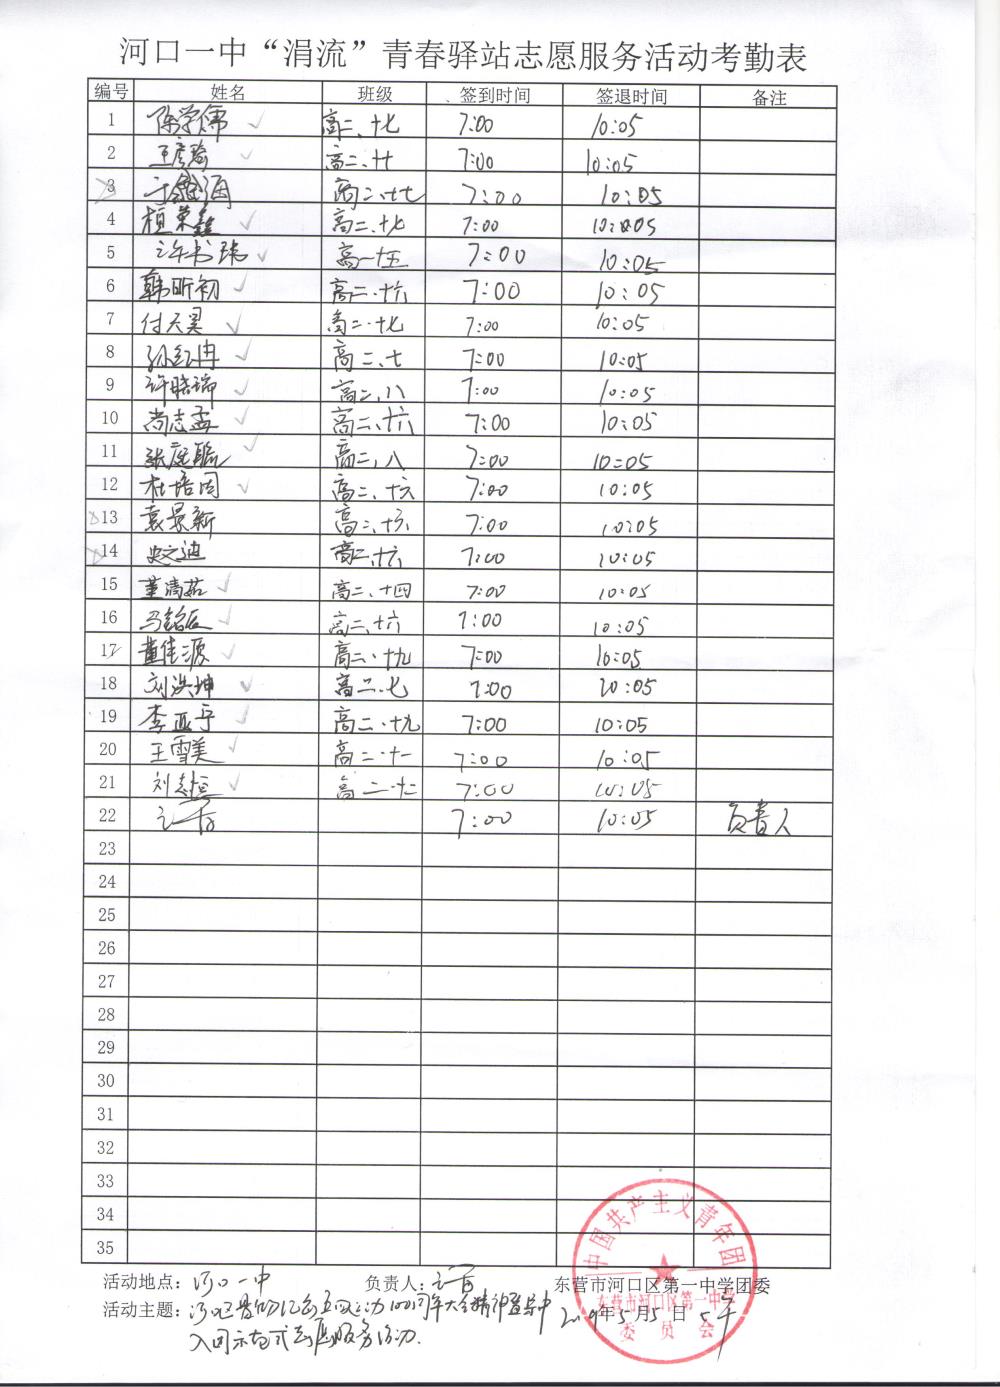 河口一中“涓流”青春驿站志愿服务活动考勤表
编号 姓名 班级 签到时间 签退时间 备注
1 陈学儒 高二、十七 7:00 10:05
2 王彦瑜 高二、十 7:00 10:05
3 高二、十七 7:00 10:05
4 桓荣鑫 高二、十七 7:00 10:05
5 许书瑞 高一十五 7:00 10:05
6 韩昕初 高二·十六 7:00 10:05
7 付天昊 高二·十七 7:00 10:05
8 孙红冉 高二、七 7:00 10:05
9 许晓瑞 高二、八 7:00 10:05
10 尚志孟 高二、十六 7:00 10:05
11 张庭毓 高二、八 7:00 10:05
12 杜培周 高二、十六 7:00 10:05
13 袁景新 高二、十六 7:00 10:05
14 史文迪 高二、十六 7:00 10:05
15 董清茹 高二、十四 7:00 10:05
16 马铭辰 高二、十六 7:00 10:05
17 董佳源 高二·十九 7:00 10:05
18 刘洪坤 高二、七 7:00 10:05
19 李亚宁 高二·十九 7:00 10:05
20 王雪美 高二·十一 7:00 10:05
21 刘志恒 高二·十二 7:00 10:05
22 7:00 10:05 负责人
23
24
25
26
27
28
29
30
31
32
33
34
35
中国共产主义青年团
东营市河口区第一中学
委员会
活动地点：河口一中 负责人： 东营市河口区第一中学团委
活动主题：河口区 纪念五四运动100周年大会精神暨 中 2019年5月5日
入团 式志愿服务活动.